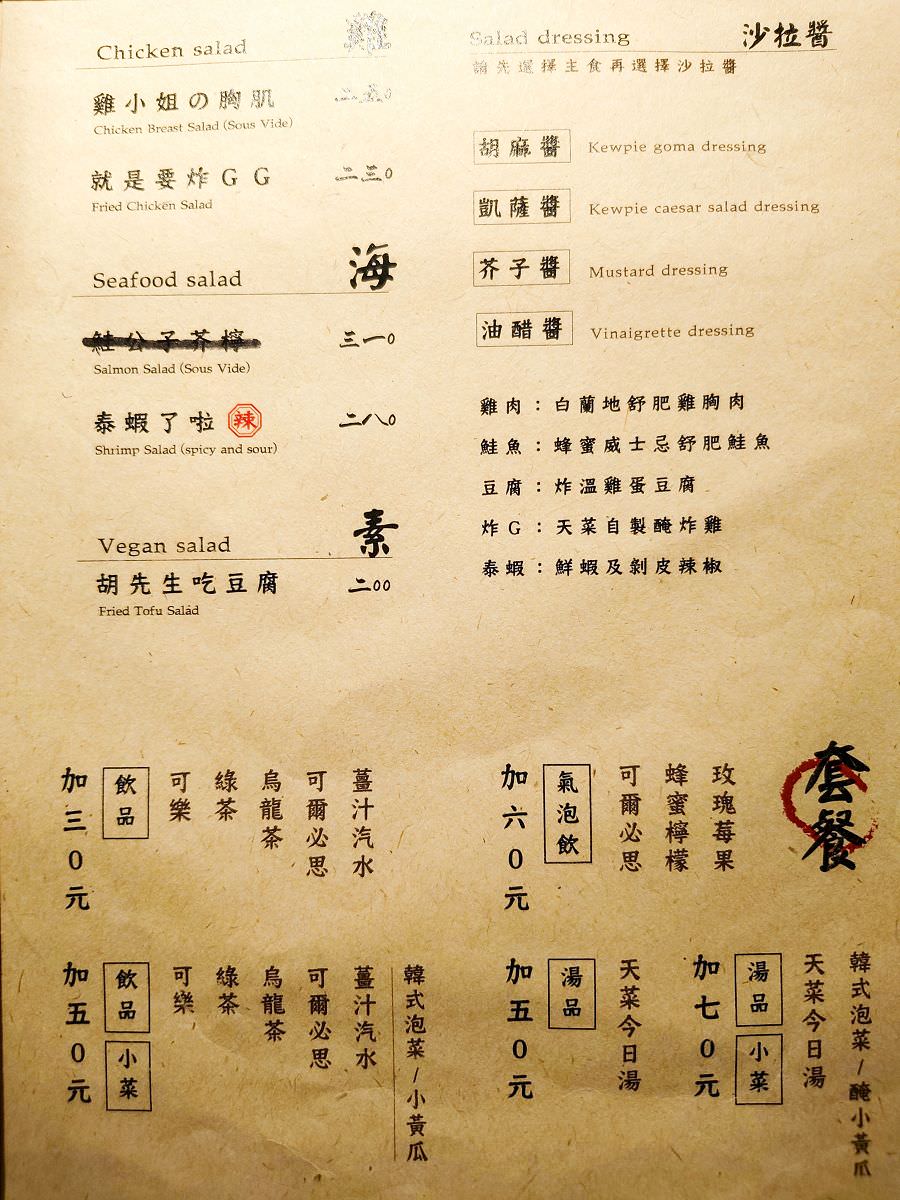 Chicken salad 雞
雞小姐の胸肌 二五〇
Chicken Breast Salad (Sous Vide)
就是要炸GG 二三〇
Fried Chicken Salad
Seafood salad 海
鮭公子芥檸 三一〇
Salmon Salad (Sous Vide)
泰蝦了啦 辣 二八〇
Shrimp Salad (spicy and sour)
Vegan salad 素
胡先生吃豆腐 二〇〇
Fried Tofu Salad
Salad dressing 沙拉醬
請先選擇主食再選擇沙拉醬
胡麻醬 Kewpie goma dressing
凱薩醬 Kewpie caesar salad dressing
芥子醬 Mustard dressing
油醋醬 Vinaigrette dressing
雞肉：白蘭地舒肥雞胸肉
鮭魚：蜂蜜威士忌舒肥鮭魚
豆腐：炸溫雞蛋豆腐
炸G：天菜自製醃炸雞
泰蝦：鮮蝦及剝皮辣椒
套餐
玫瑰莓果
蜂蜜檸檬
可爾必思
氣泡飲
加六0元
薑汁汽水
可爾必思
烏龍茶
綠茶
可樂
飲品
加三0元
韓式泡菜/醃小黃瓜
天菜今日湯
湯品 小菜
加七0元
天菜今日湯
湯品
加五0元
韓式泡菜/小黃瓜
薑汁汽水
可爾必思
烏龍茶
綠茶
可樂
飲品 小菜
加五0元